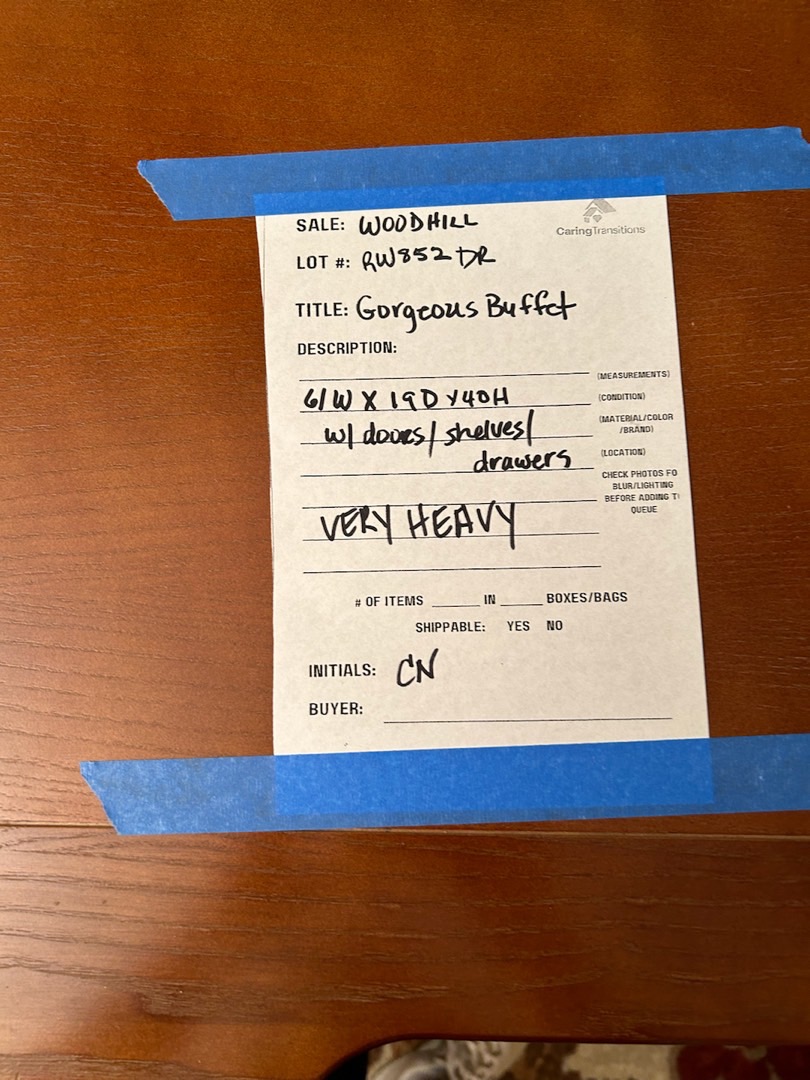 SALE: WOODHILL
CaringTransitions
LOT #: RW852 DR
TITLE: Gorgeous Buffet
DESCRIPTION:
(MEASUREMENTS)
61W X 19D X 40H (CONDITION)
w/ doors/ shelves/ (MATERIAL/COLOR
/BRAND)
drawers (LOCATION)
CHECK PHOTOS FO
BLUR/LIGHTING
BEFORE ADDING T
QUEUE
VERY HEAVY
# OF ITEMS IN BOXES/BAGS
SHIPPABLE: YES NO
INITIALS: CN
BUYER: